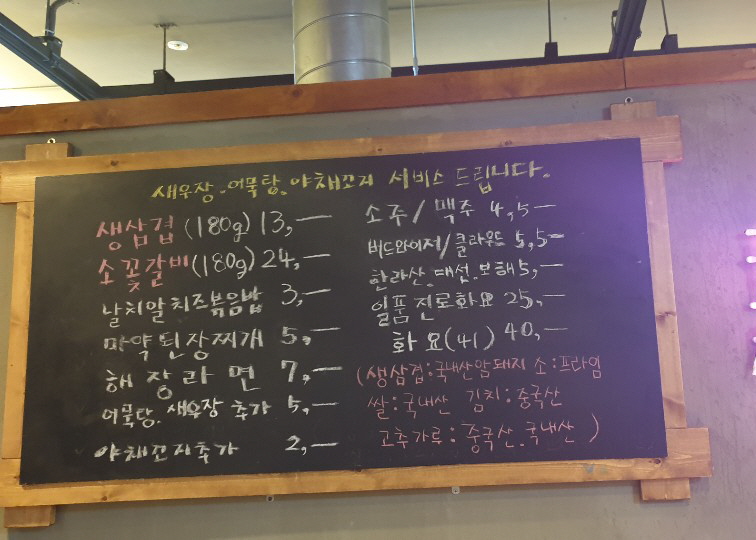 새우장.어묵탕.야채꼬지 서비스 드립니다.
생삼겹 (180g) 13,—
소꽃갈비(180g) 24,—
날치알치즈볶음밥 3,—
마약된장찌개 5,—
해장라면 7,—
어묵탕. 새우장 추가 5,—
야채꼬지추가 2,—
소주/맥주 4,5—
버드와이저/클라우드 5,5—
한라산.대선.보해5,—
일품진로화요 25,—
화요(41) 40,—
(생삼겹:국내산암돼지 소:프라임
쌀:국내산 김치:중국산
고추가루:중국산.국내산 )